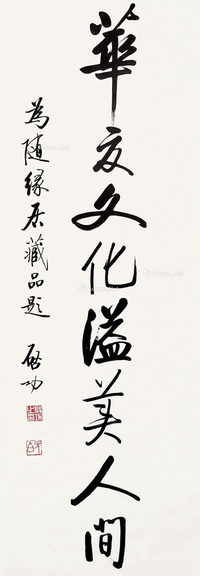 華夏文化溢美人間
為随緣居藏品題 啓功